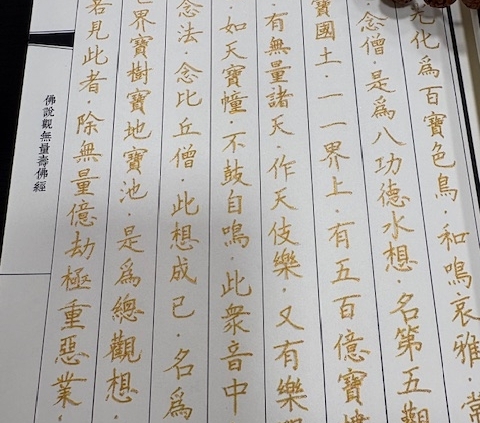 光化為百寶色鳥·和鳴哀雅·常
念僧·是為八功德水想·名第五觀
寶國土·一一界上·有五百億寶樓
·有無量諸天·作天伎樂·又有樂
·如天寶幢·不鼓自鳴·此衆音中
念法·念比丘僧·此想成已·名為
世界寶樹寶地寶池·是為總觀想·
若見此者·除無量億劫極重惡業·
佛說觀無量壽佛經